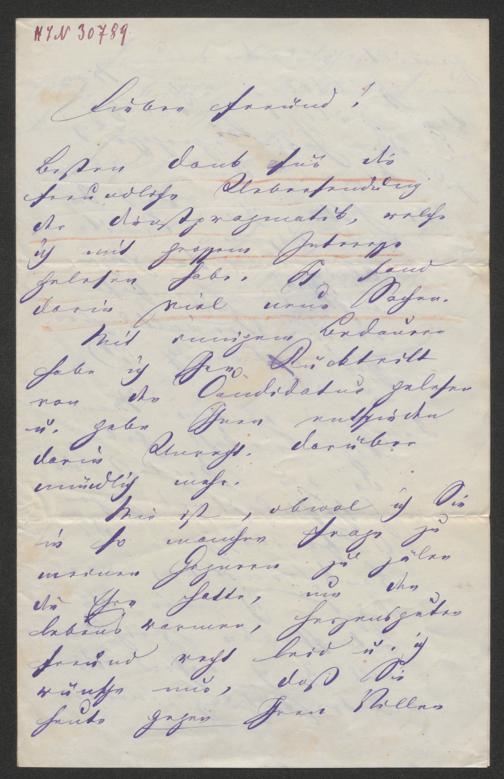 HIN 30789
Lieber Freund!
Besten Dank für die
freundliche Uebersendung
der Dienstpragmatik, welche
ich mit grossem Interesse
gelesen habe. Ich fand
darin viel neue Sachen.
Mit innigem Bedauern
habe ich Ihren Rücktritt
von der Candidatur gelesen
u. gebe Ihnen entschieden
darin Unrecht. Darüber
mündlich mehr.
Mir ist, obwol ich Sie
in so mancher Frage zu
meinen Gegnern zu zälen
die Ehre hatte, um den
lebenswarmen, herzensguten
Freund recht leid u. ich
wünsche nur, daß Sie
heute gegen Ihren Willen